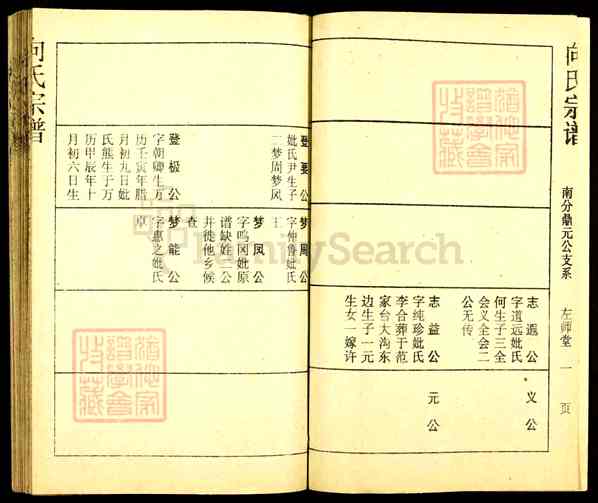 向氏宗谱
南分鼎元公支系
左师堂
一页
志遐公
字道远妣氏
何生子三全
会义全会二
公无传
志益公
字纯珍妣氏
李合葬于范
家台大沟东
边生子一元
生女一嫁许
义公
元公
登要公
妣氏尹生子
二梦周梦凤
登极公
字朝卿生万
历壬寅年腊
月初九日妣
氏熊生于万
历甲辰年十
月初六日生
梦周公
字仲鲁妣氏
王
梦凤公
字鸣冈妣原
谱缺姓二公
并徙他乡候
查
梦能公
字惠之妣氏
卓
向氏宗谱
FamilySearch